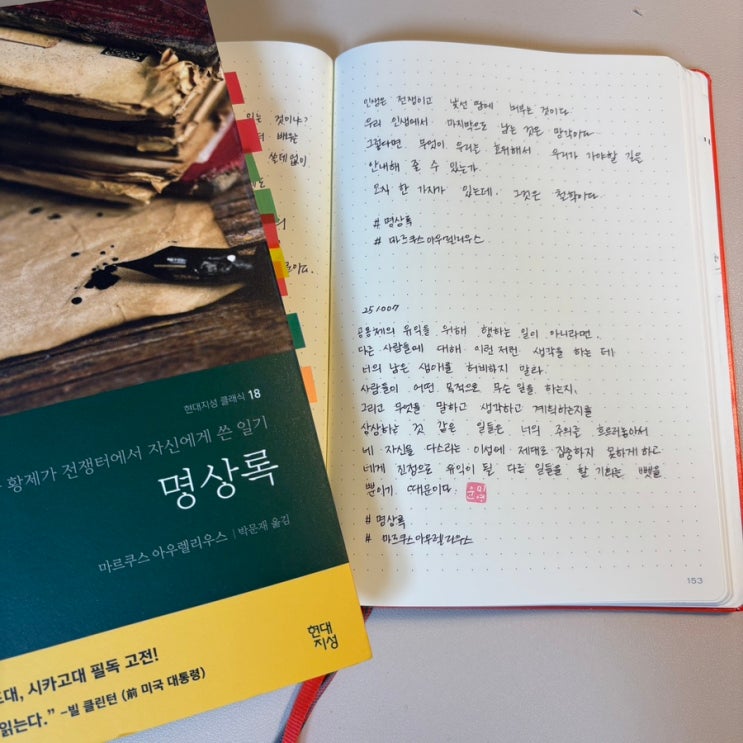 현대지성 클래식 18
황제가 전쟁터에서 자신에게 쓴 일기
명상록
마르쿠스 아우렐리우스 | 박문재 옮김
현대
지성
대, 시카고대 필독 고전!
읽는다.” –빌 클린턴 (前 미국 대통령)
있는 것이냐?
쓸데없이
인생은 전쟁이고 낯선 땅에 머무는 것이다
우리 인생에서 마지막으로 남는 것은 망각이다
그렇다면 무엇이 우리를 호위해서 우리가 가야할 길을
안내해 줄 수 있는가.
오직 한 가지가 있는데. 그것은 철학이다.
#명상록
# 마르쿠스아우렐리우스
251007
공동체의 유익을 위해 행하는 일이 아니라면.
다른 사람들에 대해 이런저런 생각을 하는 데
너의 남은 생애를 허비하지 말라.
사람들이 어떤 목적으로 무슨 일을 하는지,
그리고 무엇을 말하고 생각하고 계획하는지를
상상하는 것 같은 일들은 너의 주의를 흐트러놓아서
네 자신을 다스리는 이성에 제대로 집중하지 못하게 하고
네게 진정으로 유익이 될 다른 일들을 할 기회를 뺏을
뿐이기 때문이다.
#명상록
# 마르쿠스아우렐리우스
153